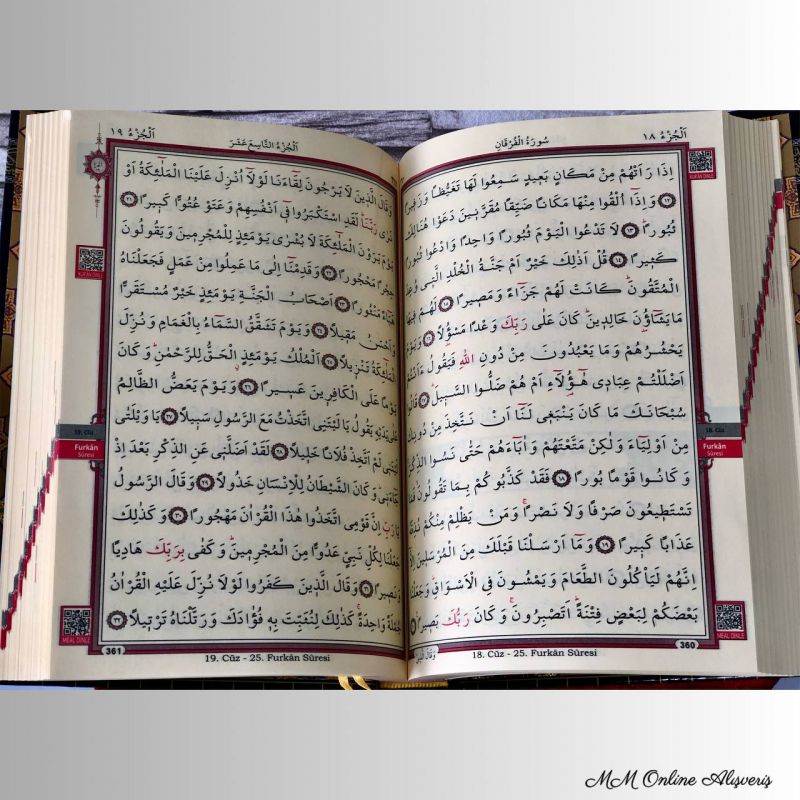 اَلْجُزْءُ ١٨
سُورَةُ الْفُرْقَانِ
اِذَا رَاَتْهُمْ مِنْ مَكَانٍ بَعِيدٍ سَمِعُوا لَهَا تَغَيُّظًا وَزَفِيرًا
﴿١٢﴾ وَاِذَٓا اُلْقُوا مِنْهَا مَكَانًا ضَيِّقًا مُقَرَّنِينَ دَعَوْا هُنَالِكَ
ثُبُورًاۜ ﴿١٣﴾ لَا تَدْعُوا الْيَوْمَ ثُبُورًا وَاحِدًا وَادْعُوا ثُبُورًا
كَثِيرًا ﴿١٤﴾ قُلْ اَذٰلِكَ خَيْرٌ اَمْ جَنَّةُ الْخُلْدِ الَّتِي وُعِدَ
الْمُتَّقُونَۜ كَانَتْ لَهُمْ جَزَٓاءً وَمَصِيرًا ﴿١٥﴾ لَهُمْ فِيهَا
مَا يَشَٓاؤُ۫نَ خَالِدِينَۜ كَانَ عَلٰى رَبِّكَ وَعْدًا مَسْؤُ۫لًا ﴿١٦﴾ وَيَوْمَ
يَحْشُرُهُمْ وَمَا يَعْبُدُونَ مِنْ دُونِ اللّٰهِ فَيَقُولُ ءَاَنْتُمْ
اَضْلَلْتُمْ عِبَادِي هٰٓؤُ۬لَٓاءِ اَمْ هُمْ ضَلُّوا السَّبِيلَۜ ﴿١٧﴾ قَالُوا
سُبْحَانَكَ مَا كَانَ يَنْبَغِي لَنَٓا اَنْ نَتَّخِذَ مِنْ دُونِكَ
مِنْ اَوْلِيَٓاءَ وَلٰكِنْ مَتَّعْتَهُمْ وَاٰبَٓاءَهُمْ حَتّٰى نَسُوا الذِّكْرَۚ
وَكَانُوا قَوْمًا بُورًا ﴿١٨﴾ فَقَدْ كَذَّبُوكُمْ بِمَا تَقُولُونَۙ فَمَا
تَسْتَطِيعُونَ صَرْفًا وَلَا نَصْرًاۚ وَمَنْ يَظْلِمْ مِنْكُمْ نُذِقْهُ
عَذَابًا كَبِيرًا ﴿١٩﴾ وَمَٓا اَرْسَلْنَا قَبْلَكَ مِنَ الْمُرْسَلِينَ اِلَّٓا
اِنَّهُمْ لَيَأْكُلُونَ الطَّعَامَ وَيَمْشُونَ فِي الْاَسْوَاقِۜ وَجَعَلْنَا
بَعْضَكُمْ لِبَعْضٍ فِتْنَةًۜ اَتَصْبِرُونَۚ وَكَانَ رَبُّكَ بَصِيرًا ﴿٢٠﴾
وَقَالَ الَّذِينَ
18. Cüz - 25. Furkân Sûresi
360
KUR'AN DİNLE
18. Cüz
Furkân
Sûresi
MEAL DİNLE
اَلْجُزْءُ ١٩
اَلْجُزْءُ التَّاسِعَ عَشَرَ
وَقَالَ الَّذِينَ لَا يَرْجُونَ لِقَٓاءَنَا لَوْلَٓا اُنْزِلَ عَلَيْنَا الْمَلٰٓئِكَةُ اَوْ
نَرٰى رَبَّنَاۜ لَقَدِ اسْتَكْبَرُوا فِٓي اَنْفُسِهِمْ وَعَتَوْ عُتُوًّا كَبِيرًا ﴿٢١﴾
يَوْمَ يَرَوْنَ الْمَلٰٓئِكَةَ لَا بُشْرٰى يَوْمَئِذٍ لِلْمُجْرِمِينَ وَيَقُولُونَ
حِجْرًا مَحْجُورًا ﴿٢٢﴾ وَقَدِمْنَٓا اِلٰى مَا عَمِلُوا مِنْ عَمَلٍ فَجَعَلْنَاهُ
هَبَٓاءً مَنْثُورًا ﴿٢٣﴾ اَصْحَابُ الْجَنَّةِ يَوْمَئِذٍ خَيْرٌ مُسْتَقَرًّا
وَاَحْسَنُ مَقِيلًا ﴿٢٤﴾ وَيَوْمَ تَشَقَّقُ السَّمَٓاءُ بِالْغَمَامِ وَنُزِّلَ
الْمَلٰٓئِكَةُ تَنْزِيلًا ﴿٢٥﴾ اَلْمُلْكُ يَوْمَئِذٍۨ الْحَقُّ لِلرَّحْمٰنِۜ وَكَانَ
يَوْمًا عَلَى الْكَافِرِينَ عَسِيرًا ﴿٢٦﴾ وَيَوْمَ يَعَضُّ الظَّالِمُ
عَلٰى يَدَيْهِ يَقُولُ يَا لَيْتَنِي اتَّخَذْتُ مَعَ الرَّسُولِ سَبِيلًا ﴿٢٧﴾ يَا وَيْلَتٰى
لَيْتَنِي لَمْ اَتَّخِذْ فُلَانًا خَلِيلًا ﴿٢٨﴾ لَقَدْ اَضَلَّنِي عَنِ الذِّكْرِ بَعْدَ اِذْ
جَٓاءَنِيۜ وَكَانَ الشَّيْطَانُ لِلْاِنْسَانِ خَذُولًا ﴿٢٩﴾ وَقَالَ الرَّسُولُ
يَا رَبِّ اِنَّ قَوْمِي اتَّخَذُوا هٰذَا الْقُرْاٰنَ مَهْجُورًا ﴿٣٠﴾ وَكَذٰلِكَ
جَعَلْنَا لِكُلِّ نَبِيٍّ عَدُوًّا مِنَ الْمُجْرِمِينَۜ وَكَفٰى بِرَبِّكَ هَادِيًا
وَنَصِيرًا ﴿٣١﴾ وَقَالَ الَّذِينَ كَفَرُوا لَوْلَا نُزِّلَ عَلَيْهِ الْقُرْاٰنُ
جُمْلَةً وَاحِدَةًۚ كَذٰلِكَ لِنُثَبِّتَ بِهِ فُؤٰادَكَ وَرَتَّلْنَاهُ تَرْتِيلًا ﴿٣٢﴾
19. Cüz - 25. Furkân Sûresi
361
KUR'AN DİNLE
19. Cüz
Furkân
Sûresi
MEAL DİNLE
MM Online Alışveriş